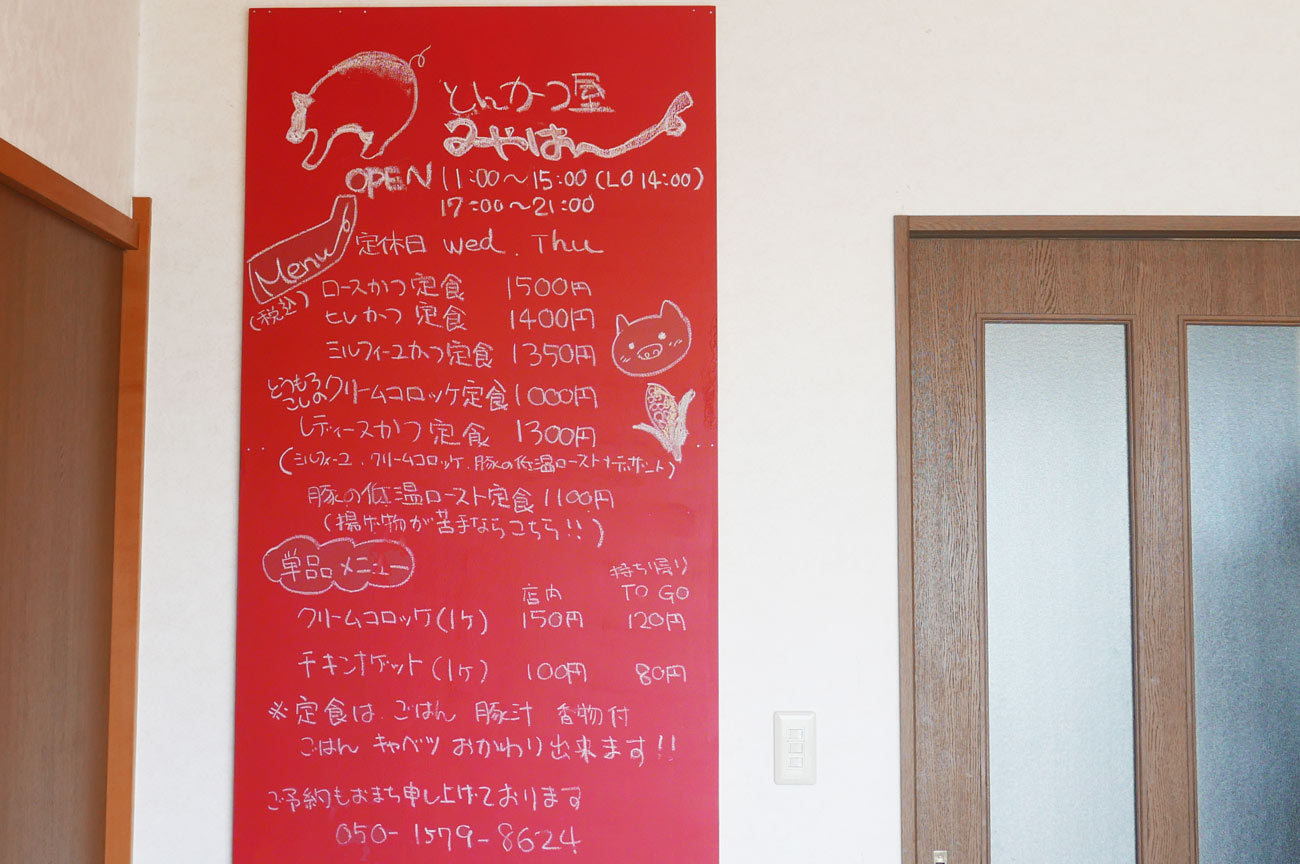 とんかつ屋
みやはん
OPEN 11:00〜15:00 (LO 14:00)
17:00〜21:00
定休日 wed. Thu
Menu
(税込)
ロースかつ定食 1500円
ヒレかつ定食 1400円
ミルフィーユかつ定食 1350円
とうもろこしのクリームコロッケ定食 1000円
レディースかつ定食 1300円
(ミルフィーユ、クリームコロッケ、豚の低温ロースト+デザート)
豚の低温ロースト定食 1100円
(揚げ物が苦手ならこちら!!)
単品メニュー
店内 持ち帰り TO GO
クリームコロッケ(1ケ) 150円 120円
チキンナゲット(1ケ) 100円 80円
※定食は ごはん 豚汁 香物付
ごはん キャベツ おかわり出来ます!!
ご予約もおまち申し上げております
050-1579-8624